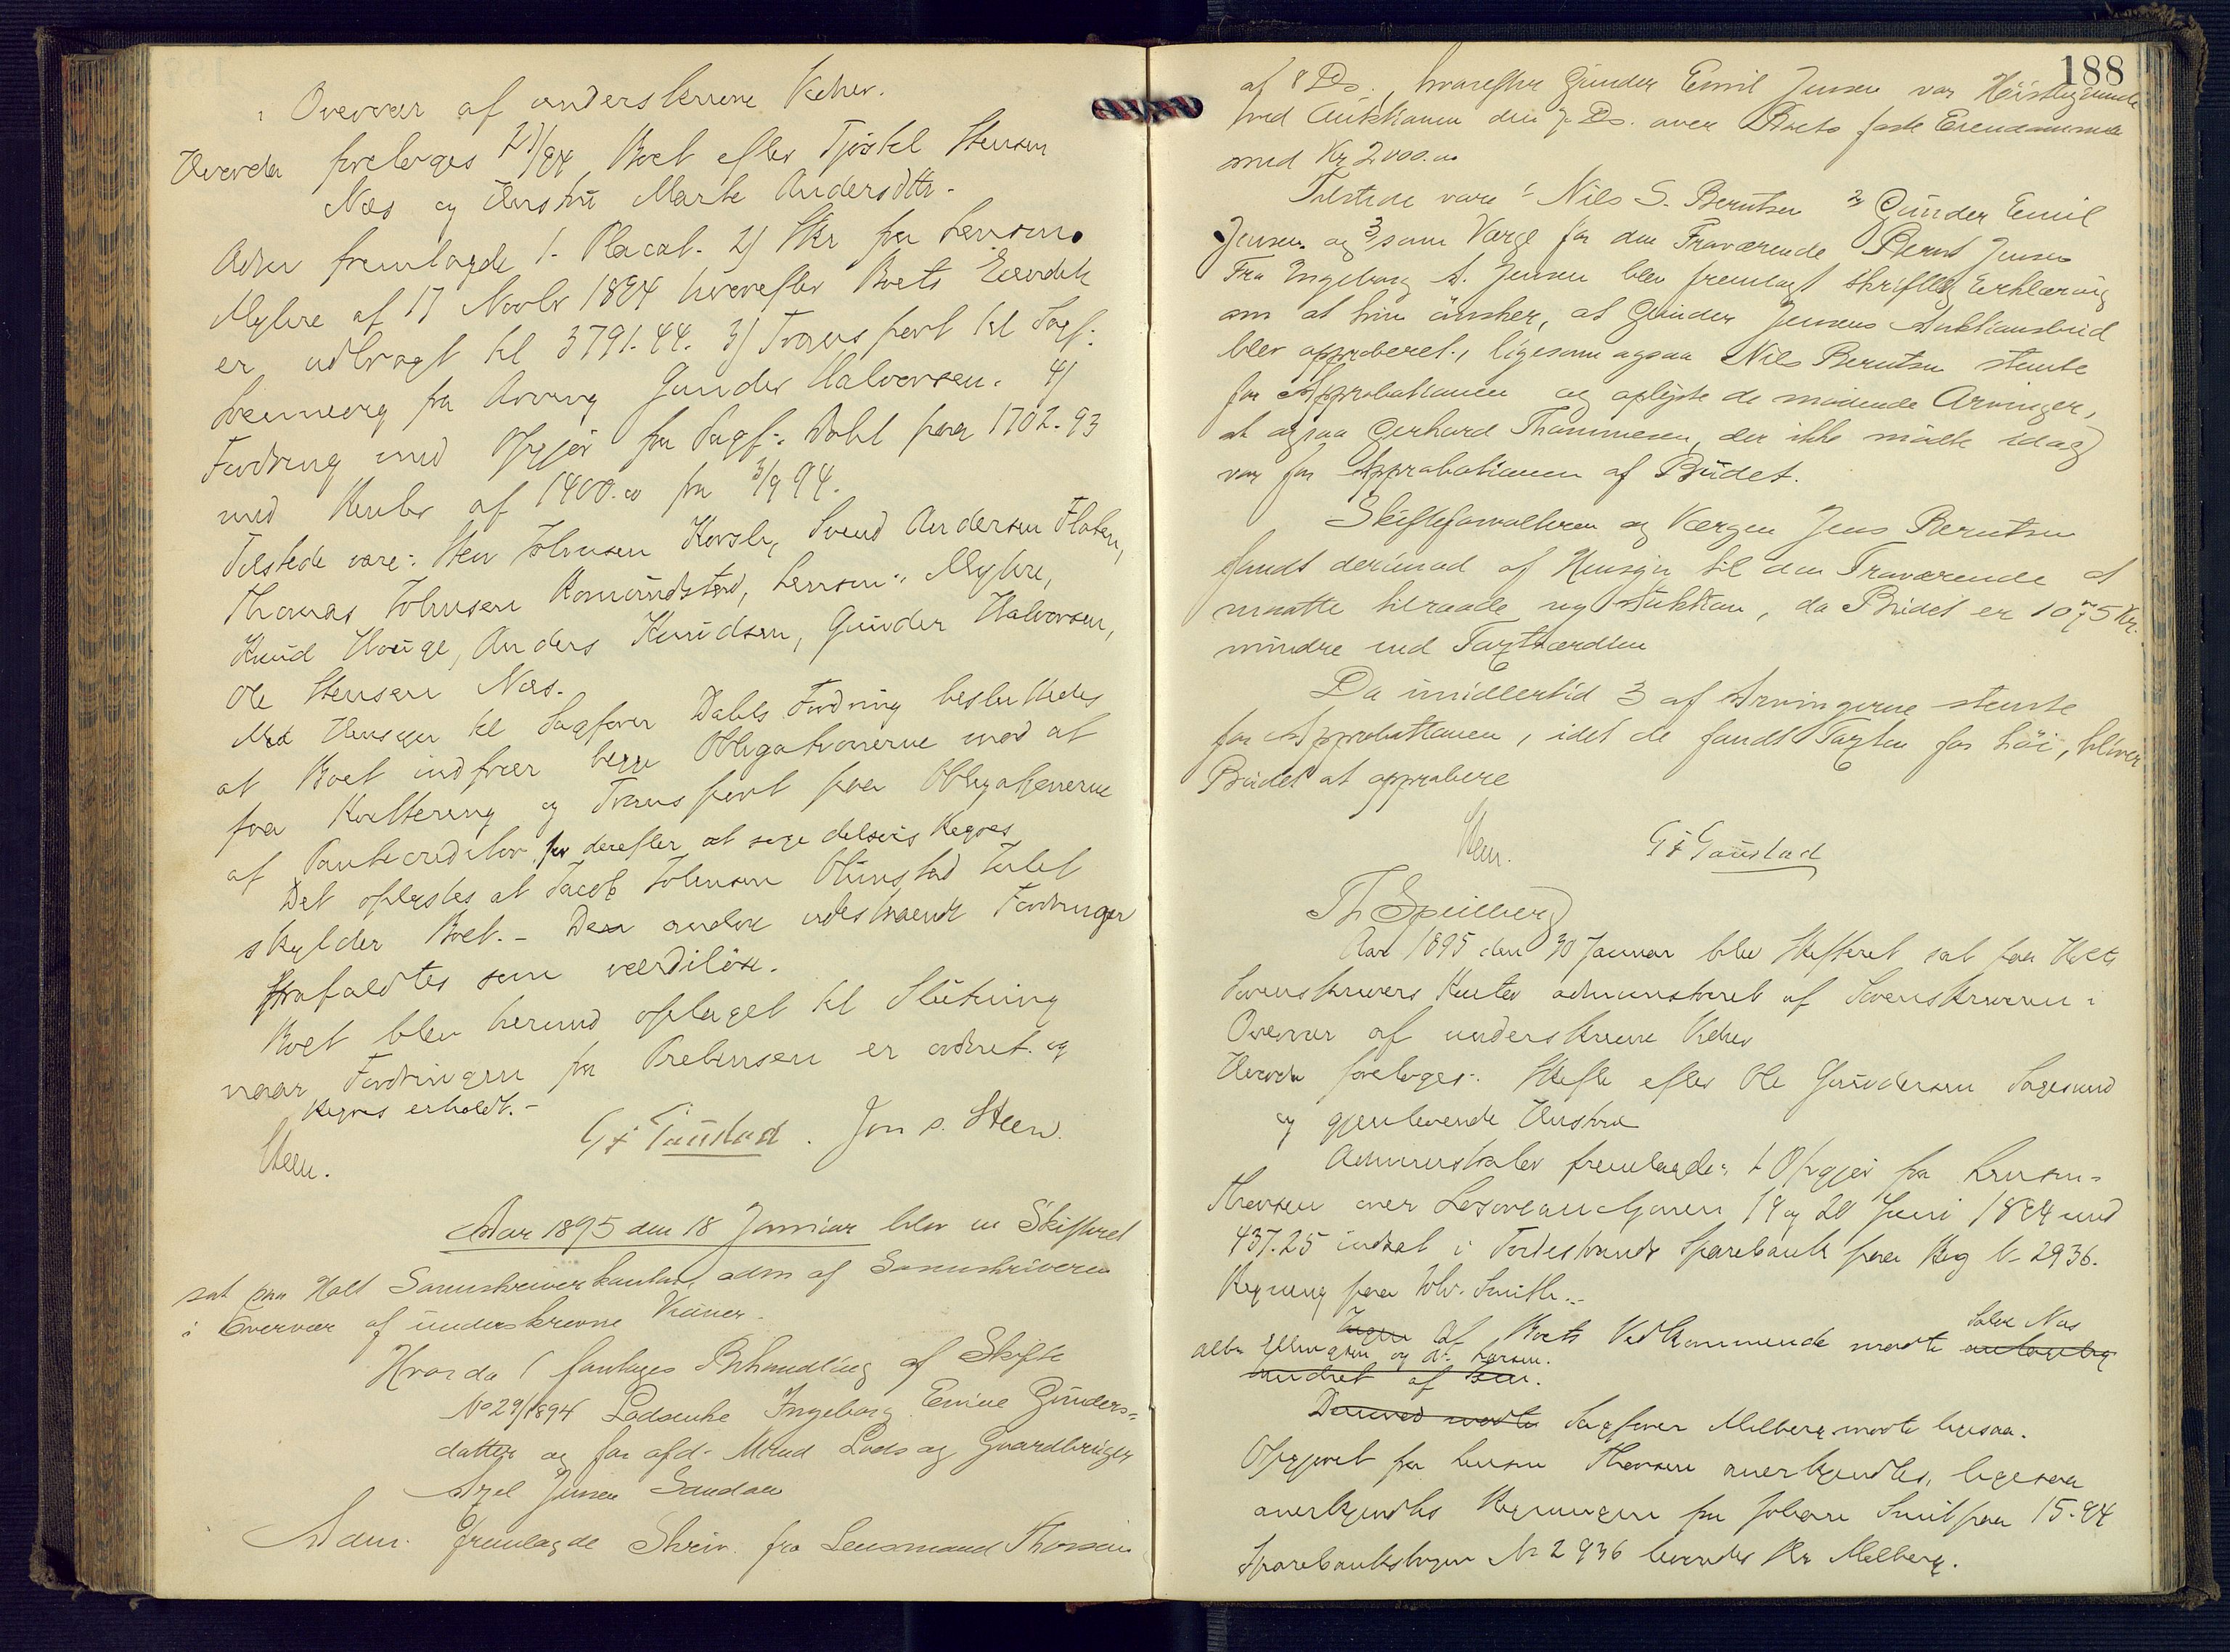 i Overvær af underskrevne Vidner.
Hvorda foretoges 21/94 Boet efter Tjöstel Stensen
Næs og Hustru Marte Andersdtr.
Adm fremlagde 1. Placat. 2) Skr fra Lensm.
Myhre af 17 Novbr 1894 hvorefter Boets Eiendele
er udbragt til 3791.44. 3) Transport til Sagf:
fra Arving Gunder Halvorsen. 4)
Fordring med Opgjör fra Sagf: Dahl paa 1702.93
med Renter af 1400.00 fra 3/9 94.
Tilstede vare: Sten Johnsen, Svend Andersen Flaten,
Thomas Johnsen Romundstad, Lensm: Myhre,
Knud Houge, Anders Knudsen, Gunder Halvorsen,
Ole Stensen Næs.
Med Hensyn til Sagförer Dahls Fordring besluttedes
at Boet indfrier begge Obligationerne mod at
faa Kvittering og Transport paa Obligationerne
af Pantecreditor for derefter at söge delsvis Regres
Det oplystes at Jacob Johnsen Olimstad Intet
skylder Boet. - Den anden udestaaende Fordringer
frafaldtes som værdilöse.
Boet blev herved optaget til Slutning
naar Fordringen fra Prebensen er ordnet. og
Regres erholdt. -
Steen.
G. F. Taustad. Jon S. Steen.
Aar 1895 den 18 Januar blev en Skifteret
sat paa Holt Sorenskriverkontor, adm af Sorenskriveren
i Overvær af underskrevne Vidner.
Hvorda 1 foretages Behandling af Skifte
No 29/1894 Lodsenke Ingeborg Emine Gunders-
datter og for afd. Mand Lods og Gaardbruger
Axel Jensen Sandöen
Adm. fremlagde Skriv. fra Lensmand Thorsen
188
af 8 Ds., hvorefter Gunder Emil Jensen var Höistbydende
ved Auktionen den 7 Ds. over Boets faste Eiendomme
med Kr 2000.00
Tilstede vare 1 Nils S. Berntsen 2) Gunder Emil
Jensen og 3) som Værge for den Fraværende Bernt Jensen
Fra Ingeborg A. Jensen blev fremlagt skriftlig Erklæring
om at hun önsker, at Gunder Jensens Auktionsbud
blev approberet., ligesom ogsaa Nils Berntsen stemte
for Approbationen og oplyste de mödende Arvinger,
at ogsaa Gerhard Thommesen, der ikke mödte idag
var for Approbationen af Budet.
Skifteforvalteren og Værgen Jens Berntsen
fandt derimod af Hensyn til den Fraværende at
maatte tilraade ny Auktion, da Budet er 1075 Kr.
mindre end Taxtværdien
Da imidlertid 3 af Arvingerne stemte
for Approbationen, idet de fandt Taxten for höi, bliver
Budet at approbere
Steen.
G F Taustad
Th Speilberg
Aar 1895 den 30 Januar blev Skifteret sat paa Holts
Sorenskrivers Kontor administreret af Sorenskriveren i
Overvær af underskrevne Vidner
Hvorda foretoges: Skifte efter Ole Gundersen Sagesund
og gjenlevende Hustru
Administrator fremlagde: 1 Opgjör fra Lensm.
Thorsen over Lösöreauctionen 19 og 20 Juni 1894 med
437.25 indsat i Tvedestrands Sparebank paa Bog No 2936.
Regning fra Joh. Smith.-
Ingen Af Boets Vedkommende mödte
Salve Næs
Alb. Ellingsen og A. Larsen.
andret af
Derimod mödte Sagförer Melberg mödte ligesaa.
Opgjöret fra Lensm Thorsen anerkjendtes, ligesaa
anerkjendtes Regningen fra Johan Smit paa 15.94
Sparebanksbogen No 2936 leveredes Hr Melberg.